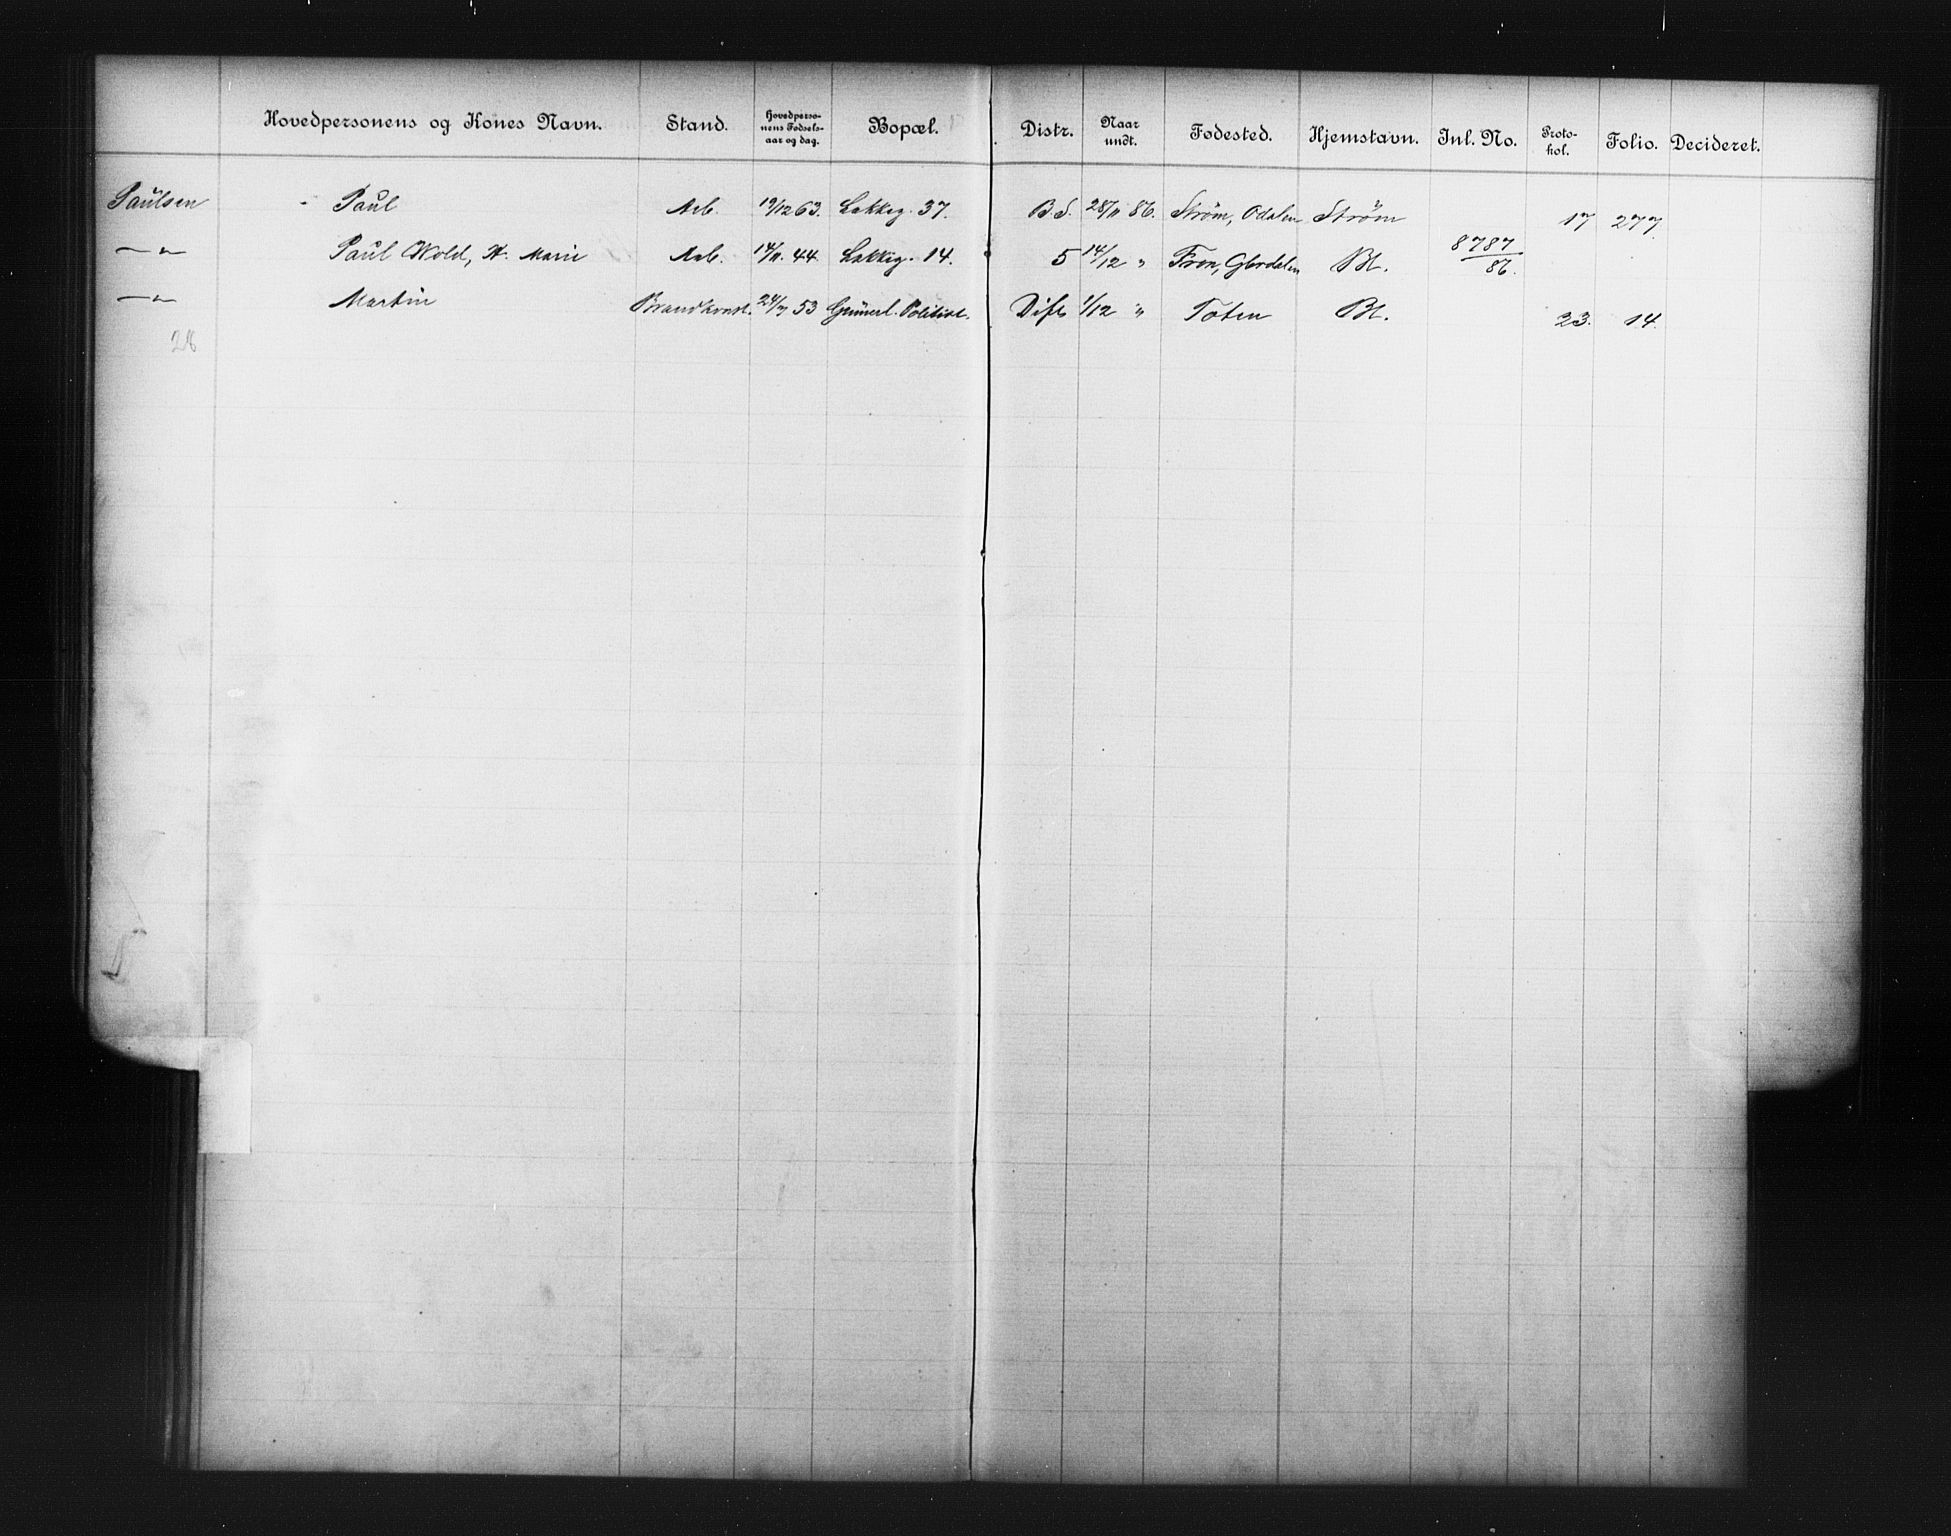 Hovedpersonens og Kones Navn. Stand. Hovedperso-nens Fødsels-aar og dag. Bopæl. Distr. Naar undt. Fødested. Hjemstavn. Inl. No. Proto-kol. Folio. Decideret.
Paulsen - Paul Arb. 19/12 63. Lakkeg. 37. B S. 28/11 86. Strøm, Odalen Strøm 17 277.
—"— Paul Wold, H. Marie Arb. 14/11. 44. Lakkeg. 14. 5 14/12 " Fron, Gbrdalen Bl. 8787/86.
—"— Martin Brandkonst. 24/7 53 Grünerl. Politist. 1/12 " Toten Bl. 23. 14.
28